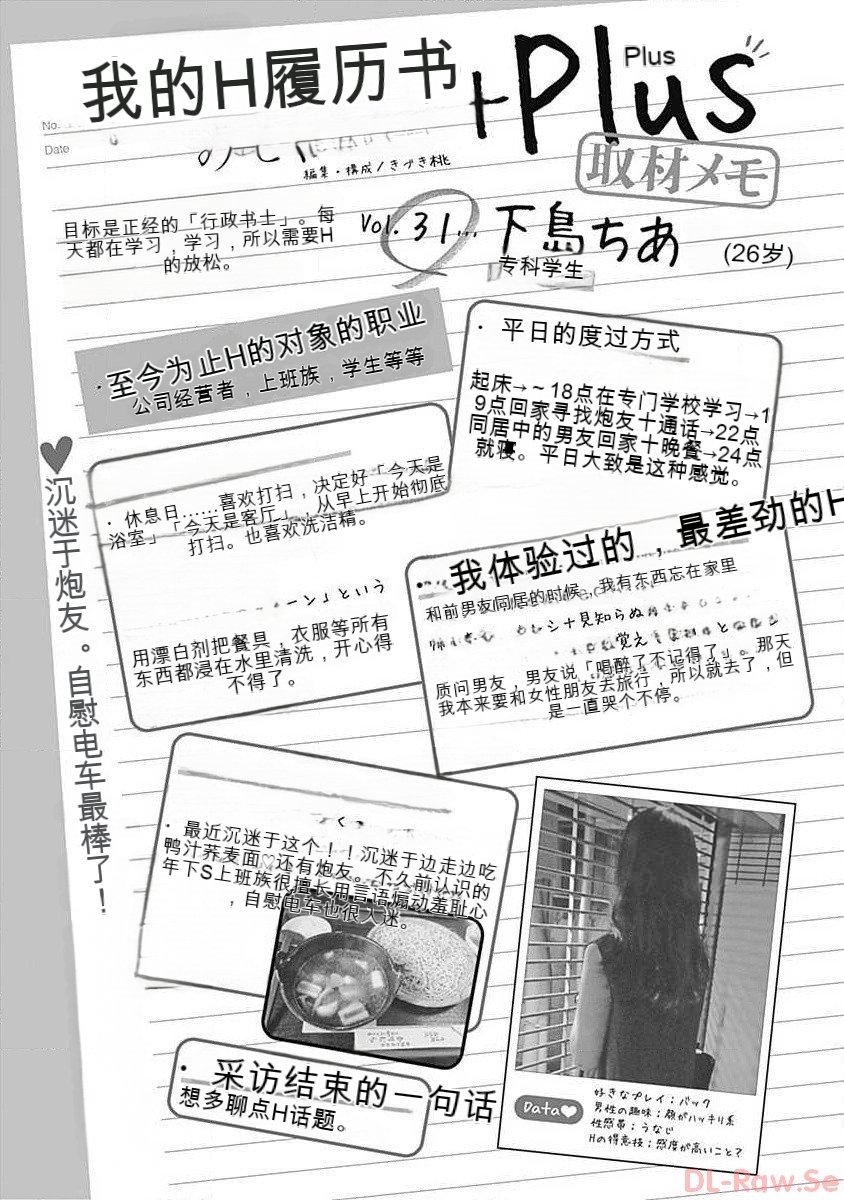 我的H履历书
+Plus
Plus
No.
Date
編集・構成/きづき桃
取材メモ
目标是正经的「行政书士」。每
天都在学习，学习，所以需要H
的放松。
Vol. 31...
下島ちあ
(26岁)
专科学生
·至今为止H的对象的职业
公司经营者，上班族，学生等等
· 平日的度过方式
起床→～18点在专门学校学习→1
9点回家寻找炮友十通话→22点
同居中的男友回家十晚餐→24点
就寝。平日大致是这种感觉。
♥沉迷于炮友。自慰电车最棒了！
· 休息日……喜欢打扫，决定好「今天是
浴室」「今天是客厅」，从早上开始彻底
打扫。也喜欢洗洁精。
ーン」という
用漂白剂把餐具，衣服等所有
东西都浸在水里清洗，开心得
不得了。
· 我体验过的，最差劲的H
和前男友同居的时候，我有东西忘在家里
見知らぬ
覚え
质问男友，男友说「喝醉了不记得了」。那天
我本来要和女性朋友去旅行，所以就去了，但
是一直哭个不停。
· 最近沉迷于这个！！沉迷于边走边吃
鸭汁荞麦面♡还有炮友。不久前认识的
年下S上班族很擅长用言语煽动羞耻心
，自慰电车也很入迷。
· 采访结束的一句话
想多聊点H话题。
Data♥
好きなプレイ：バック
男性の趣味：顔がハッキリ系
性感帯：うなじ
Hの得意技：感度が高いこと？
DL-Raw.Se